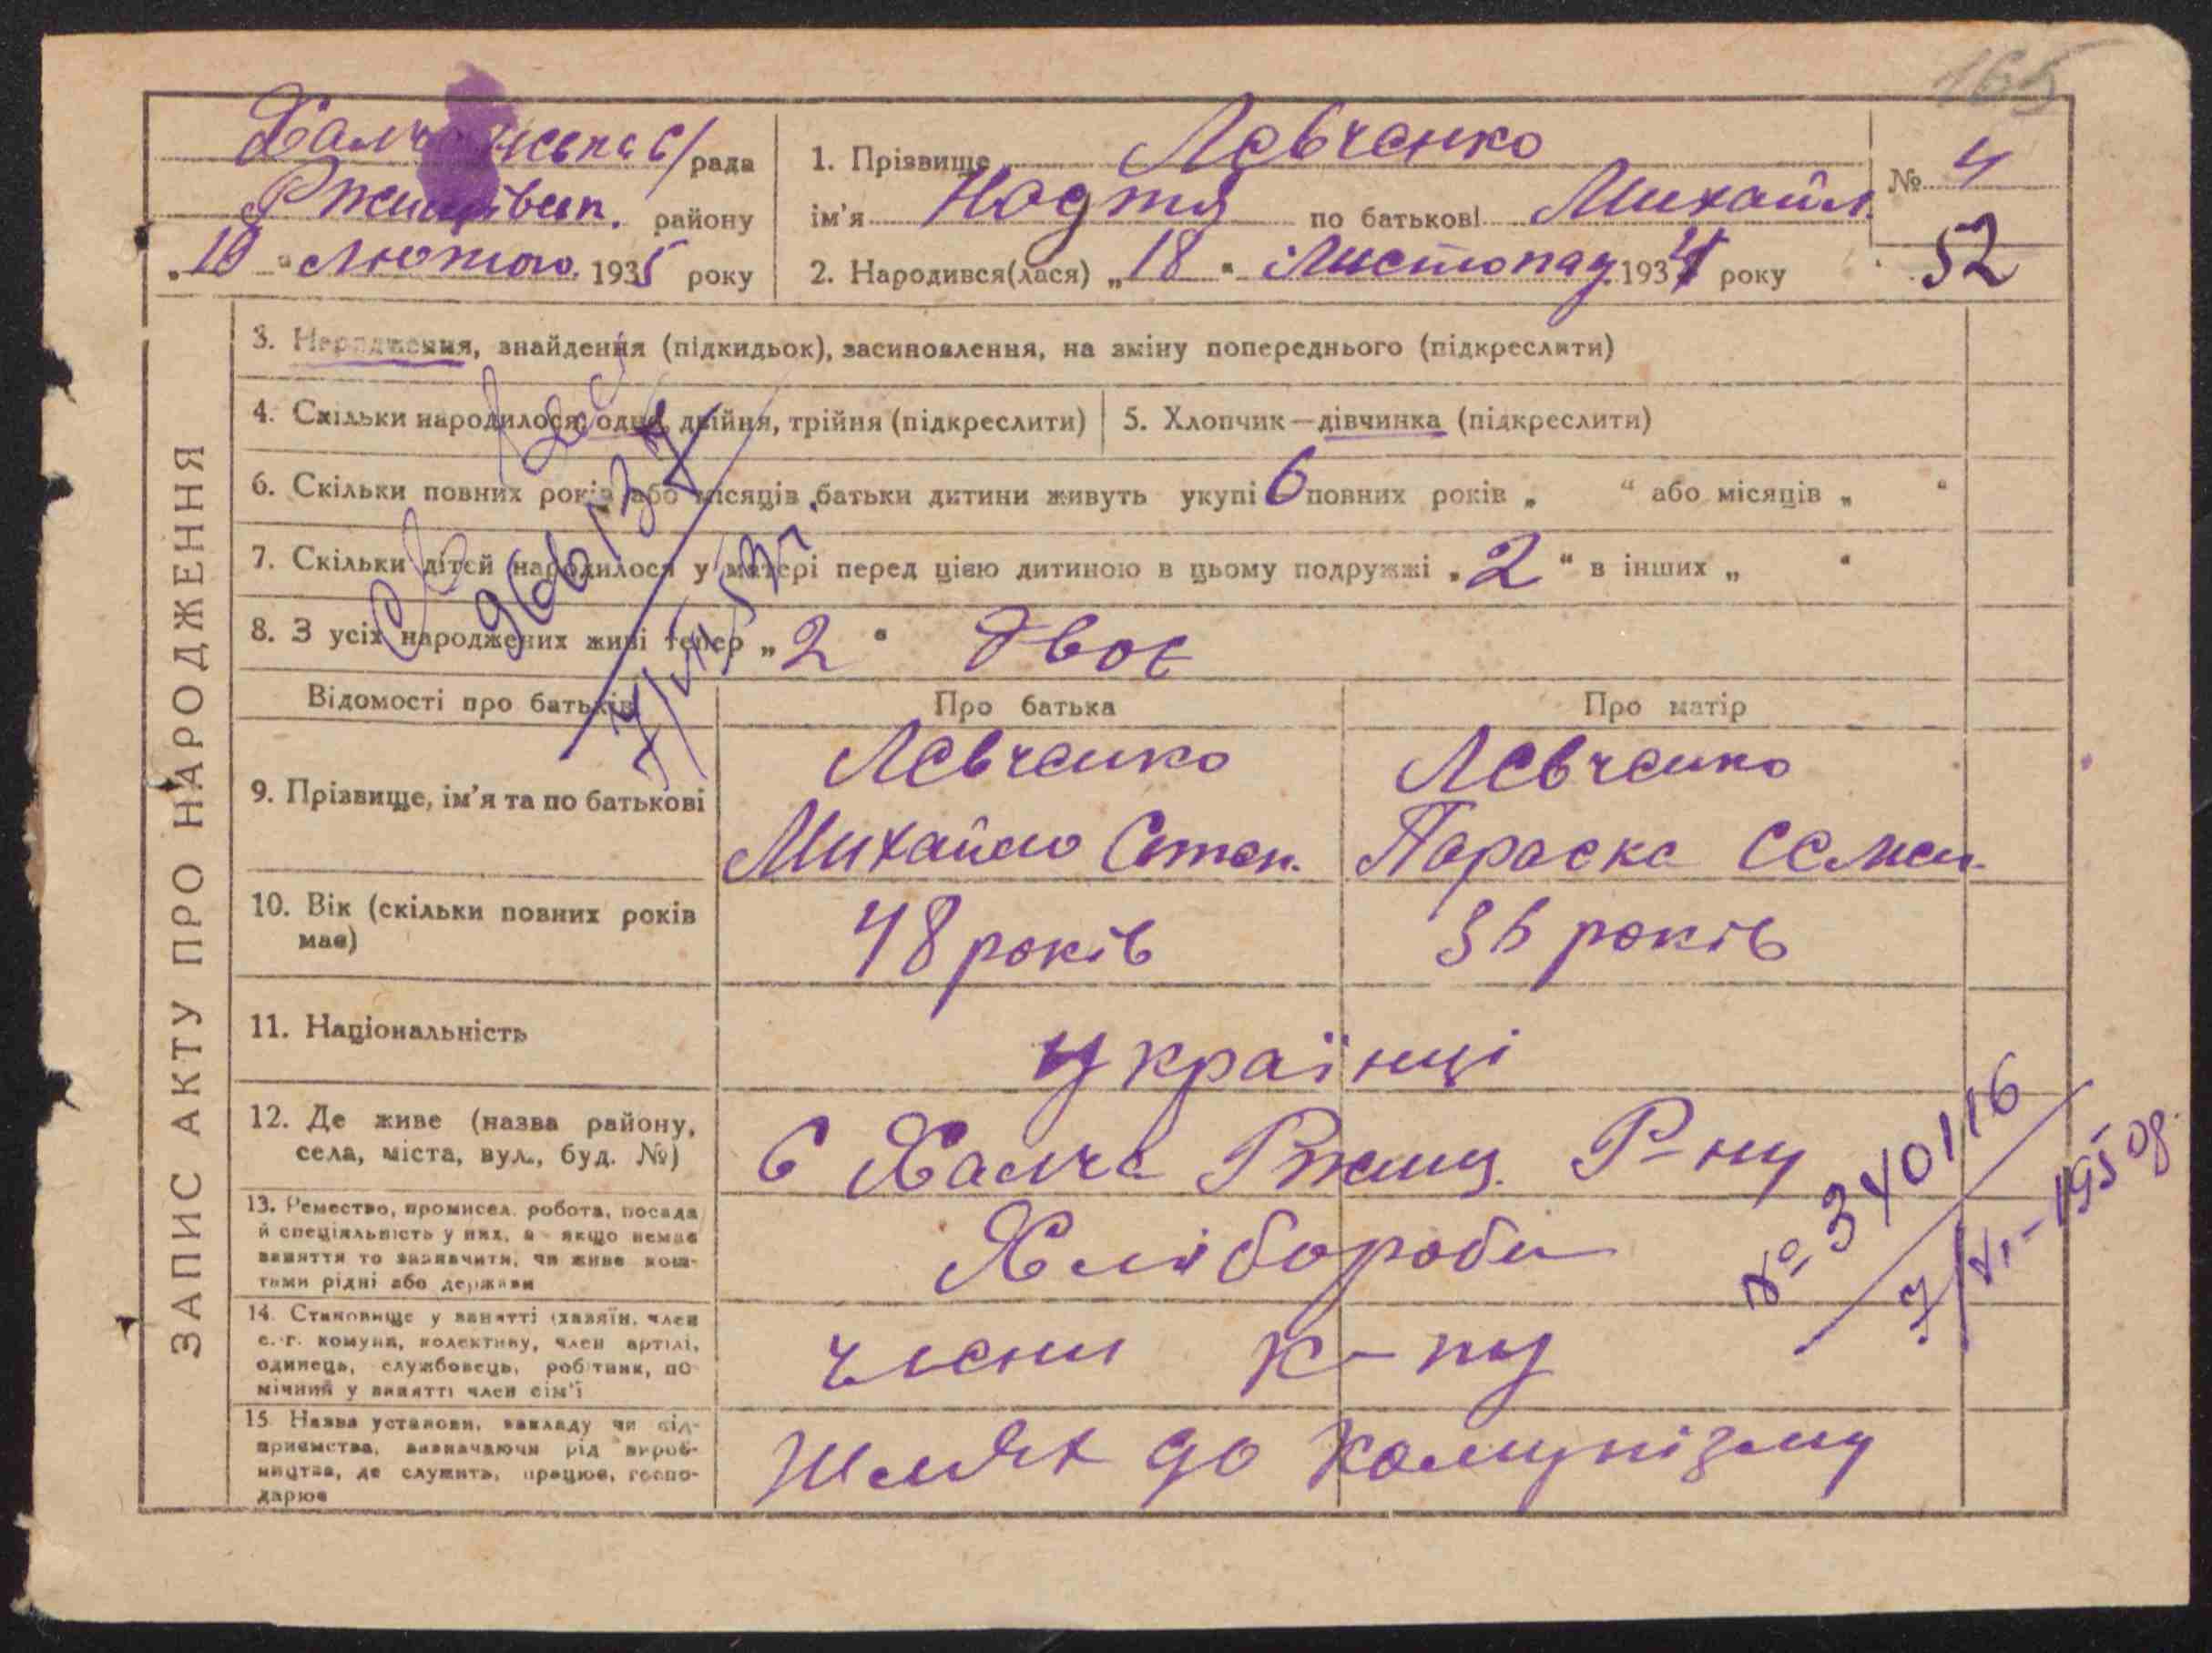 165
рада
Ржищівськ. району
"10" Лютого 1935 року
1. Прізвище Левченко
ім'я Надія по батькові Михайл.
2. Народився(лася) "18" Листопад 1934 року
№ 4
52
ЗАПИС АКТУ ПРО НАРОДЖЕННЯ
3. Народження, знайдення (підкидьок), засиновлення, на зміну попереднього (підкреслити)
4. Скільки народилося: одне, двійня, трійня (підкреслити)
5. Хлопчик—дівчинка (підкреслити)
6. Скільки повних років або місяців батьки дитини живуть укупі 6 повних років „ “ або місяців „ “
7. Скільки дітей народилося у матері перед цією дитиною в цьому подружжі „2“ в інших „ “
8. З усіх народжених живі тепер „2“ двоє
Відомості про батьків
Про батька
Про матір
9. Прізвище, ім'я та по батькові
Левченко
Михайло Степ.
Левченко
Параска Семен.
10. Вік (скільки повних років
має)
48 років
36 років
11. Національність
українці
12. Де живе (назва району,
села, міста, вул., буд. №)
с Халча Ржищ. Р-ну
13. Ремество, промисел, робота, посада
й спеціяльність у них, а якщо немає
заняття то зазначити, чи живе кош-
тами рідні або держави
Хлібороби
14. Становище у занятті (хазяїн, член
с.-г. комуни, колективу, член артілі,
одинець, службовець, робітник, по-
мічний у занятті член сім'ї
члени к-пу
15. Назва установи, закладу чи під-
приємства, визначаючи рід вироб-
ництва, де служить, працює, госпо-
дарює
Шлях до комунізму
№ 340116
7/VI-1950р.